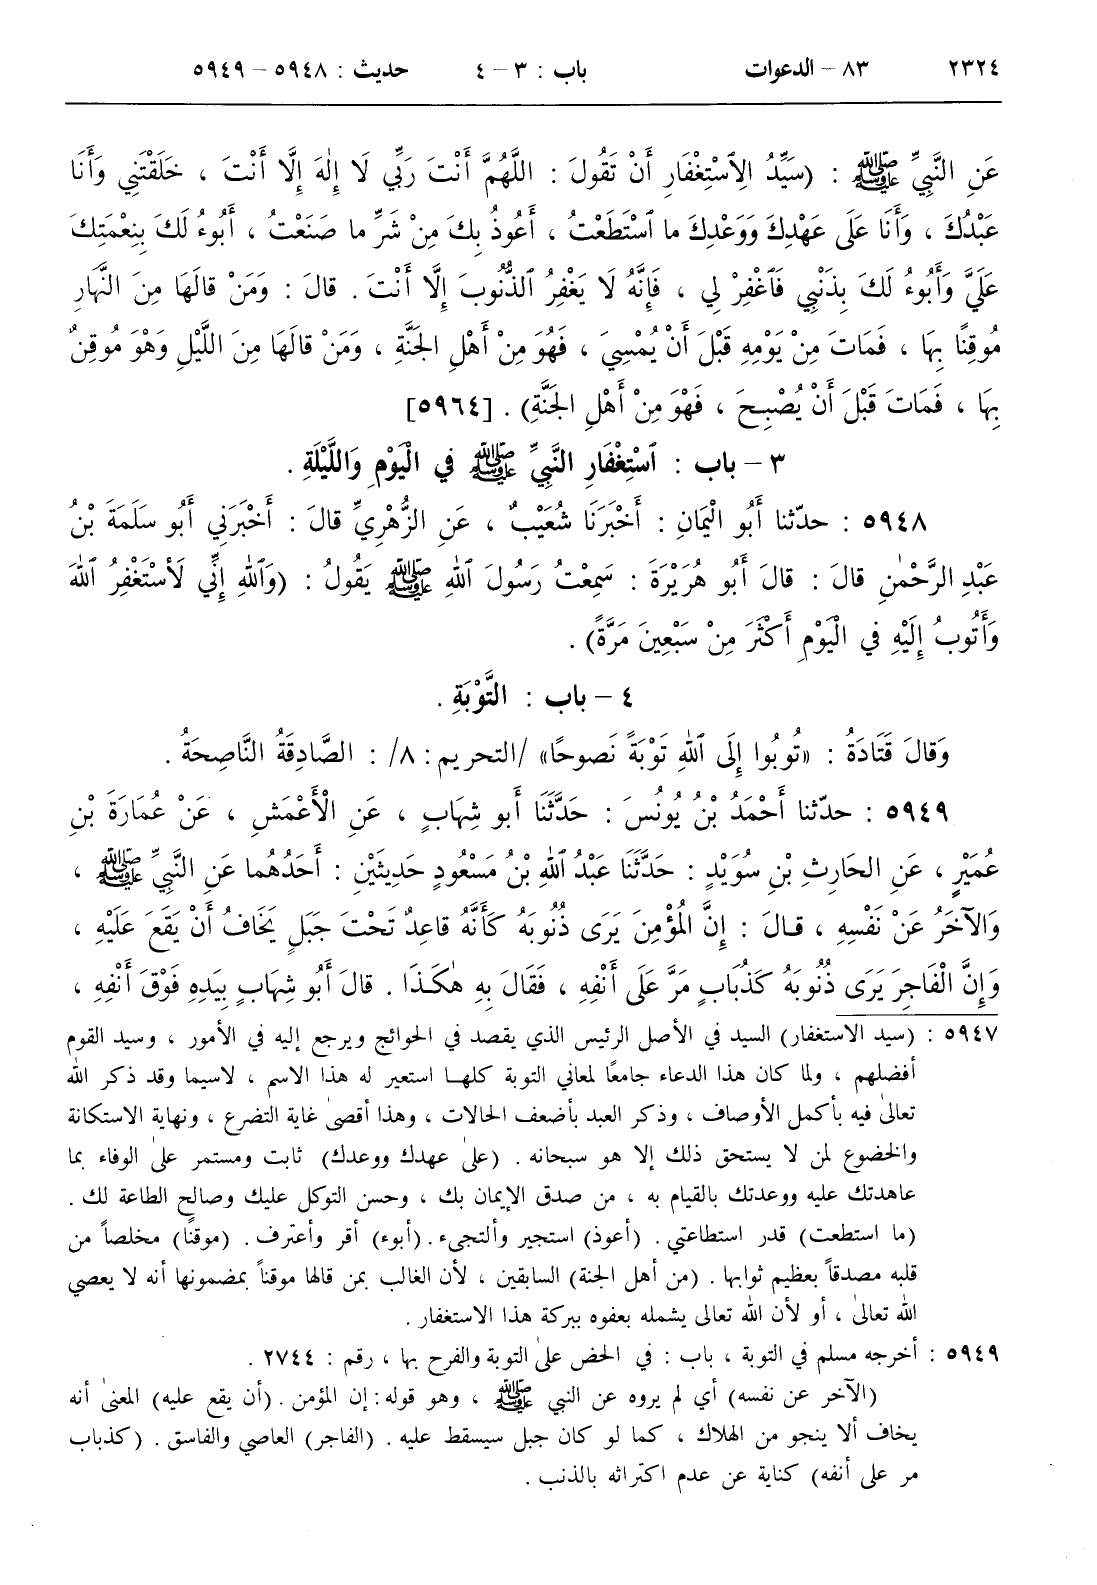 ٢٣٢٤ ٨٣ – الدعوات باب : ٣ – ٤ حديث : ٥٩٤٨ – ٥٩٤٩
عَنِ النَّبِيِّ ﷺ : (سَيِّدُ الِاسْتِغْفَارِ أَنْ تَقُولَ : اللَّهُمَّ أَنْتَ رَبِّي لَا إِلٰهَ إِلَّا أَنْتَ ، خَلَقْتَنِي وَأَنَا
عَبْدُكَ ، وَأَنَا عَلَى عَهْدِكَ وَوَعْدِكَ ما ٱسْتَطَعْتُ ، أَعُوذُ بِكَ مِنْ شَرِّ ما صَنَعْتُ ، أَبُوءُ لَكَ بِنِعْمَتِكَ
عَلَيَّ وَأَبُوءُ لَكَ بِذَنْبِي فَٱغْفِرْ لِي ، فَإِنَّهُ لَا يَغْفِرُ ٱلذُّنُوبَ إِلَّا أَنْتَ . قالَ : وَمَنْ قالَهَا مِنَ النَّهَارِ
مُوقِنًا بِهَا ، فَمَاتَ مِنْ يَوْمِهِ قَبْلَ أَنْ يُمْسِيَ ، فَهُوَ مِنْ أَهْلِ الجَنَّةِ ، وَمَنْ قالَهَا مِنَ اللَّيْلِ وَهْوَ مُوقِنٌ
بِهَا ، فَمَاتَ قَبْلَ أَنْ يُصْبِحَ ، فَهْوَ مِنْ أَهْلِ الجَنَّةِ) . [٥٩٦٤]
٣ – باب : ٱسْتِغْفَارِ النَّبِيِّ ﷺ في الْيَوْمِ وَاللَّيْلَةِ .
٥٩٤٨ : حدّثنا أَبُو الْيَمَانِ : أَخْبَرَنَا شُعَيْبٌ ، عَنِ الزُّهْرِيِّ قالَ : أَخْبَرَنِي أَبُو سَلَمَةَ بْنُ
عَبْدِ الرَّحْمٰنِ قالَ : قالَ أَبُو هُرَيْرَةَ : سَمِعْتُ رَسُولَ ٱللهِ ﷺ يَقُولُ : (وَٱللهِ إِنِّي لَأَسْتَغْفِرُ ٱللهَ
وَأَتُوبُ إِلَيْهِ في الْيَوْمِ أَكْثَرَ مِنْ سَبْعِينَ مَرَّةً) .
٤ – باب : التَّوْبَةِ .
وَقالَ قَتَادَةُ : «تُوبُوا إِلَى ٱللهِ تَوْبَةً نَصوحًا» /التحريم: ٨/ : الصَّادِقَةُ النَّاصِحَةُ .
٥٩٤٩ : حدّثنا أَحْمَدُ بْنُ يُونُسَ : حَدَّثَنَا أَبو شِهَابٍ ، عَنِ الْأَعْمَشِ ، عَنْ عُمَارَةَ بْنِ
عُمَيْرٍ ، عَنِ الحَارِثِ بْنِ سُوَيْدٍ : حَدَّثَنَا عَبْدُ ٱللهِ بْنُ مَسْعُودٍ حَدِيثَيْنِ : أَحَدُهُما عَنِ النَّبِيِّ ﷺ ،
وَالآخَرُ عَنْ نَفْسِهِ ، قالَ : إِنَّ الْمُؤْمِنَ يَرَى ذُنُوبَهُ كَأَنَّهُ قاعِدٌ تَحْتَ جَبَلٍ يَخَافُ أَنْ يَقَعَ عَلَيْهِ ،
وَإِنَّ الْفَاجِرَ يَرَى ذُنُوبَهُ كَذُبَابٍ مَرَّ عَلَى أَنْفِهِ ، فَقَالَ بِهِ هٰكَذَا . قالَ أَبُو شِهَابٍ بِيَدِهِ فَوْقَ أَنْفِهِ ،
٥٩٤٧ : (سيد الاستغفار) السيد في الأصل الرئيس الذي يقصد في الحوائج ويرجع إليه في الأمور ، وسيد القوم
أفضلهم ، ولما كان هذا الدعاء جامعًا لمعاني التوبة كلها استعير له هذا الاسم ، لاسيما وقد ذكر الله
تعالى فيه بأكمل الأوصاف ، وذكر العبد بأضعف الحالات ، وهذا أقصى غاية التضرع ، ونهاية الاستكانة
والخضوع لمن لا يستحق ذلك إلا هو سبحانه . (على عهدك ووعدك) ثابت ومستمر على الوفاء بما
عاهدتك عليه ووعدتك بالقيام به ، من صدق الإيمان بك ، وحسن التوكل عليك وصالح الطاعة لك .
(ما استطعت) قدر استطاعتي . (أعوذ) استجير وألتجىء . (أبوء) أقر وأعترف . (موقنًا) مخلصاً من
قلبه مصدقاً بعظيم ثوابها . (من أهل الجنة) السابقين ، لأن الغالب بمن قالها موقناً بمضمونها أنه لا يعصي
الله تعالى ، أو لأن الله تعالى يشمله بعفوه ببركة هذا الاستغفار .
٥٩٤٩ : أخرجه مسلم في التوبة ، باب : في الحض على التوبة والفرح بها ، رقم : ٢٧٤٤ .
(الآخر عن نفسه) أي لم يروه عن النبي ﷺ ، وهو قوله: إن المؤمن . (أن يقع عليه) المعنى أنه
يخاف ألا ينجو من الهلاك ، كما لو كان جبل سيسقط عليه . (الفاجر) العاصي والفاسق . (كذباب
مر على أنفه) كناية عن عدم اكتراثه بالذنب .